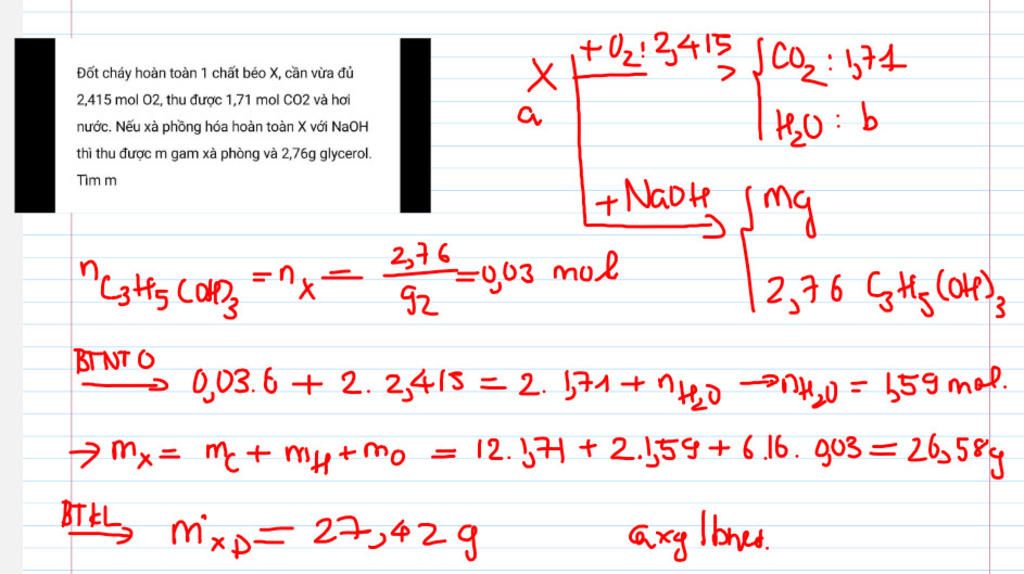 Đốt cháy hoàn toàn 1 chất béo X, cần vừa đủ
2,415 mol O2, thu được 1,71 mol CO2 và hơi
nước. Nếu xà phòng hóa hoàn toàn X với NaOH
thì thu được m gam xà phòng và 2,76g glycerol.
Tìm m
X
a
+O₂: 2,415
CO₂ : 1,71
H₂O : b
+ NaOH
mg
2,76 C₃H₅(OH)₃
n C₃H₅(OH)₃ = nₓ = 2,76/92 = 0,03 mol
BTNT O → 0,03.6 + 2. 2,415 = 2. 1,71 + n H₂O → n H₂O = 1,59 mol.
→ mₓ = m_C + m_H + m_O = 12.1,71 + 2.1,59 + 6.16. 0,03 = 26,58g
BTKL → m xp = 27,42 g